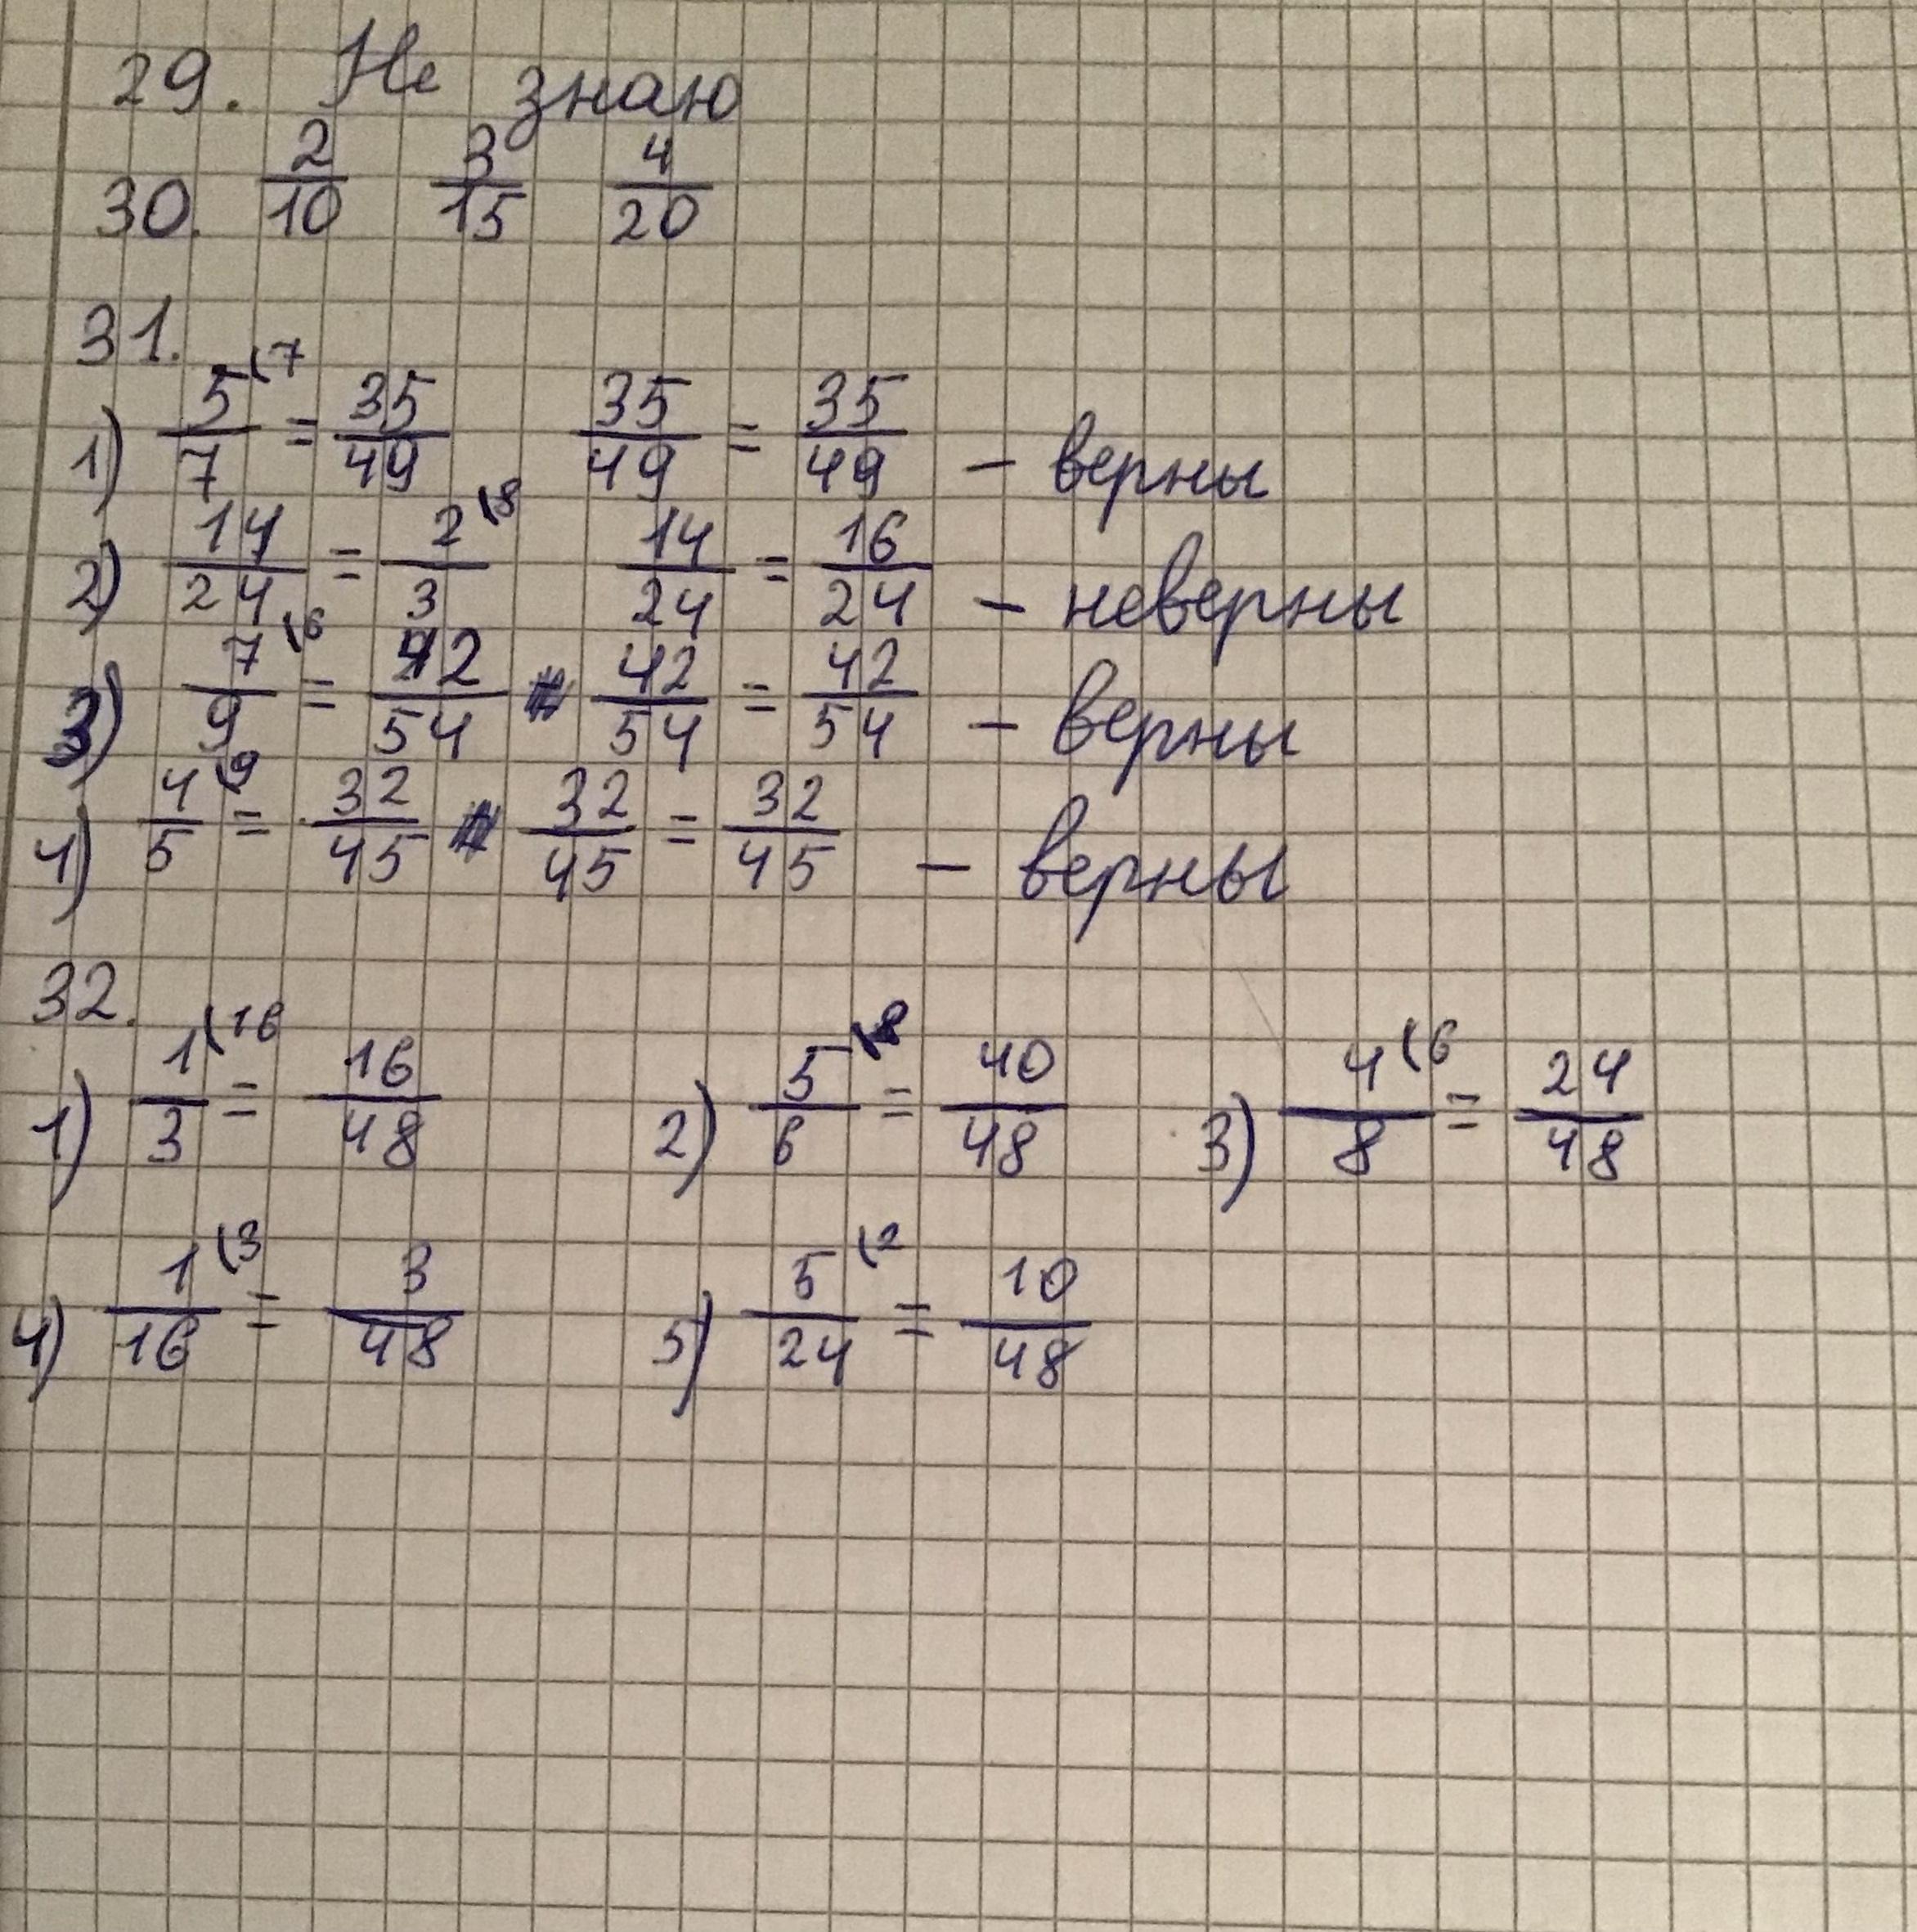 29. Не знаю
30. 2/10 3/15 4/20
31.
1) 5/7 (7 = 35/49 35/49 = 35/49 – верны
2) 14/24 = 2/3 (8 14/24 = 16/24 – неверны
3) 7/9 (6 = 42/54 42/54 = 42/54 – верны
4) 4/5 (9 = 32/45 32/45 = 32/45 – верны
32.
1) 1/3 (16 = 16/48 2) 5/6 (8 = 40/48 3) 4/8 (6 = 24/48
4) 1/16 (3 = 3/48 5) 5/24 (2 = 10/48